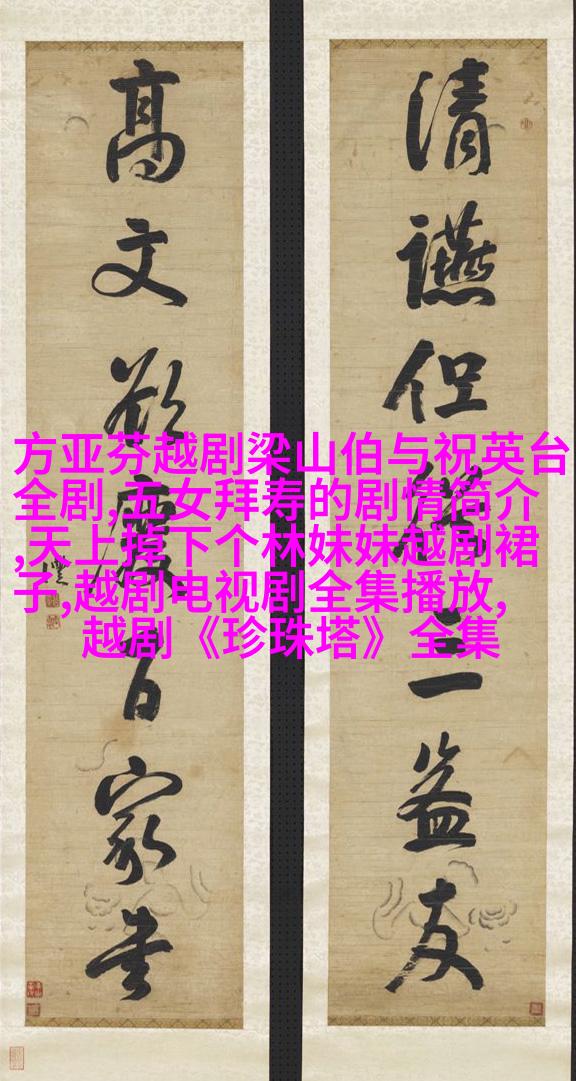 清讌但三益友
高文欲百家書
方亚芬越剧梁山伯与祝英台
全剧,五女拜寿的剧情简介
,天上掉下个林妹妹越剧裙
子,越剧电视剧全集播放,
越剧《珍珠塔》全集